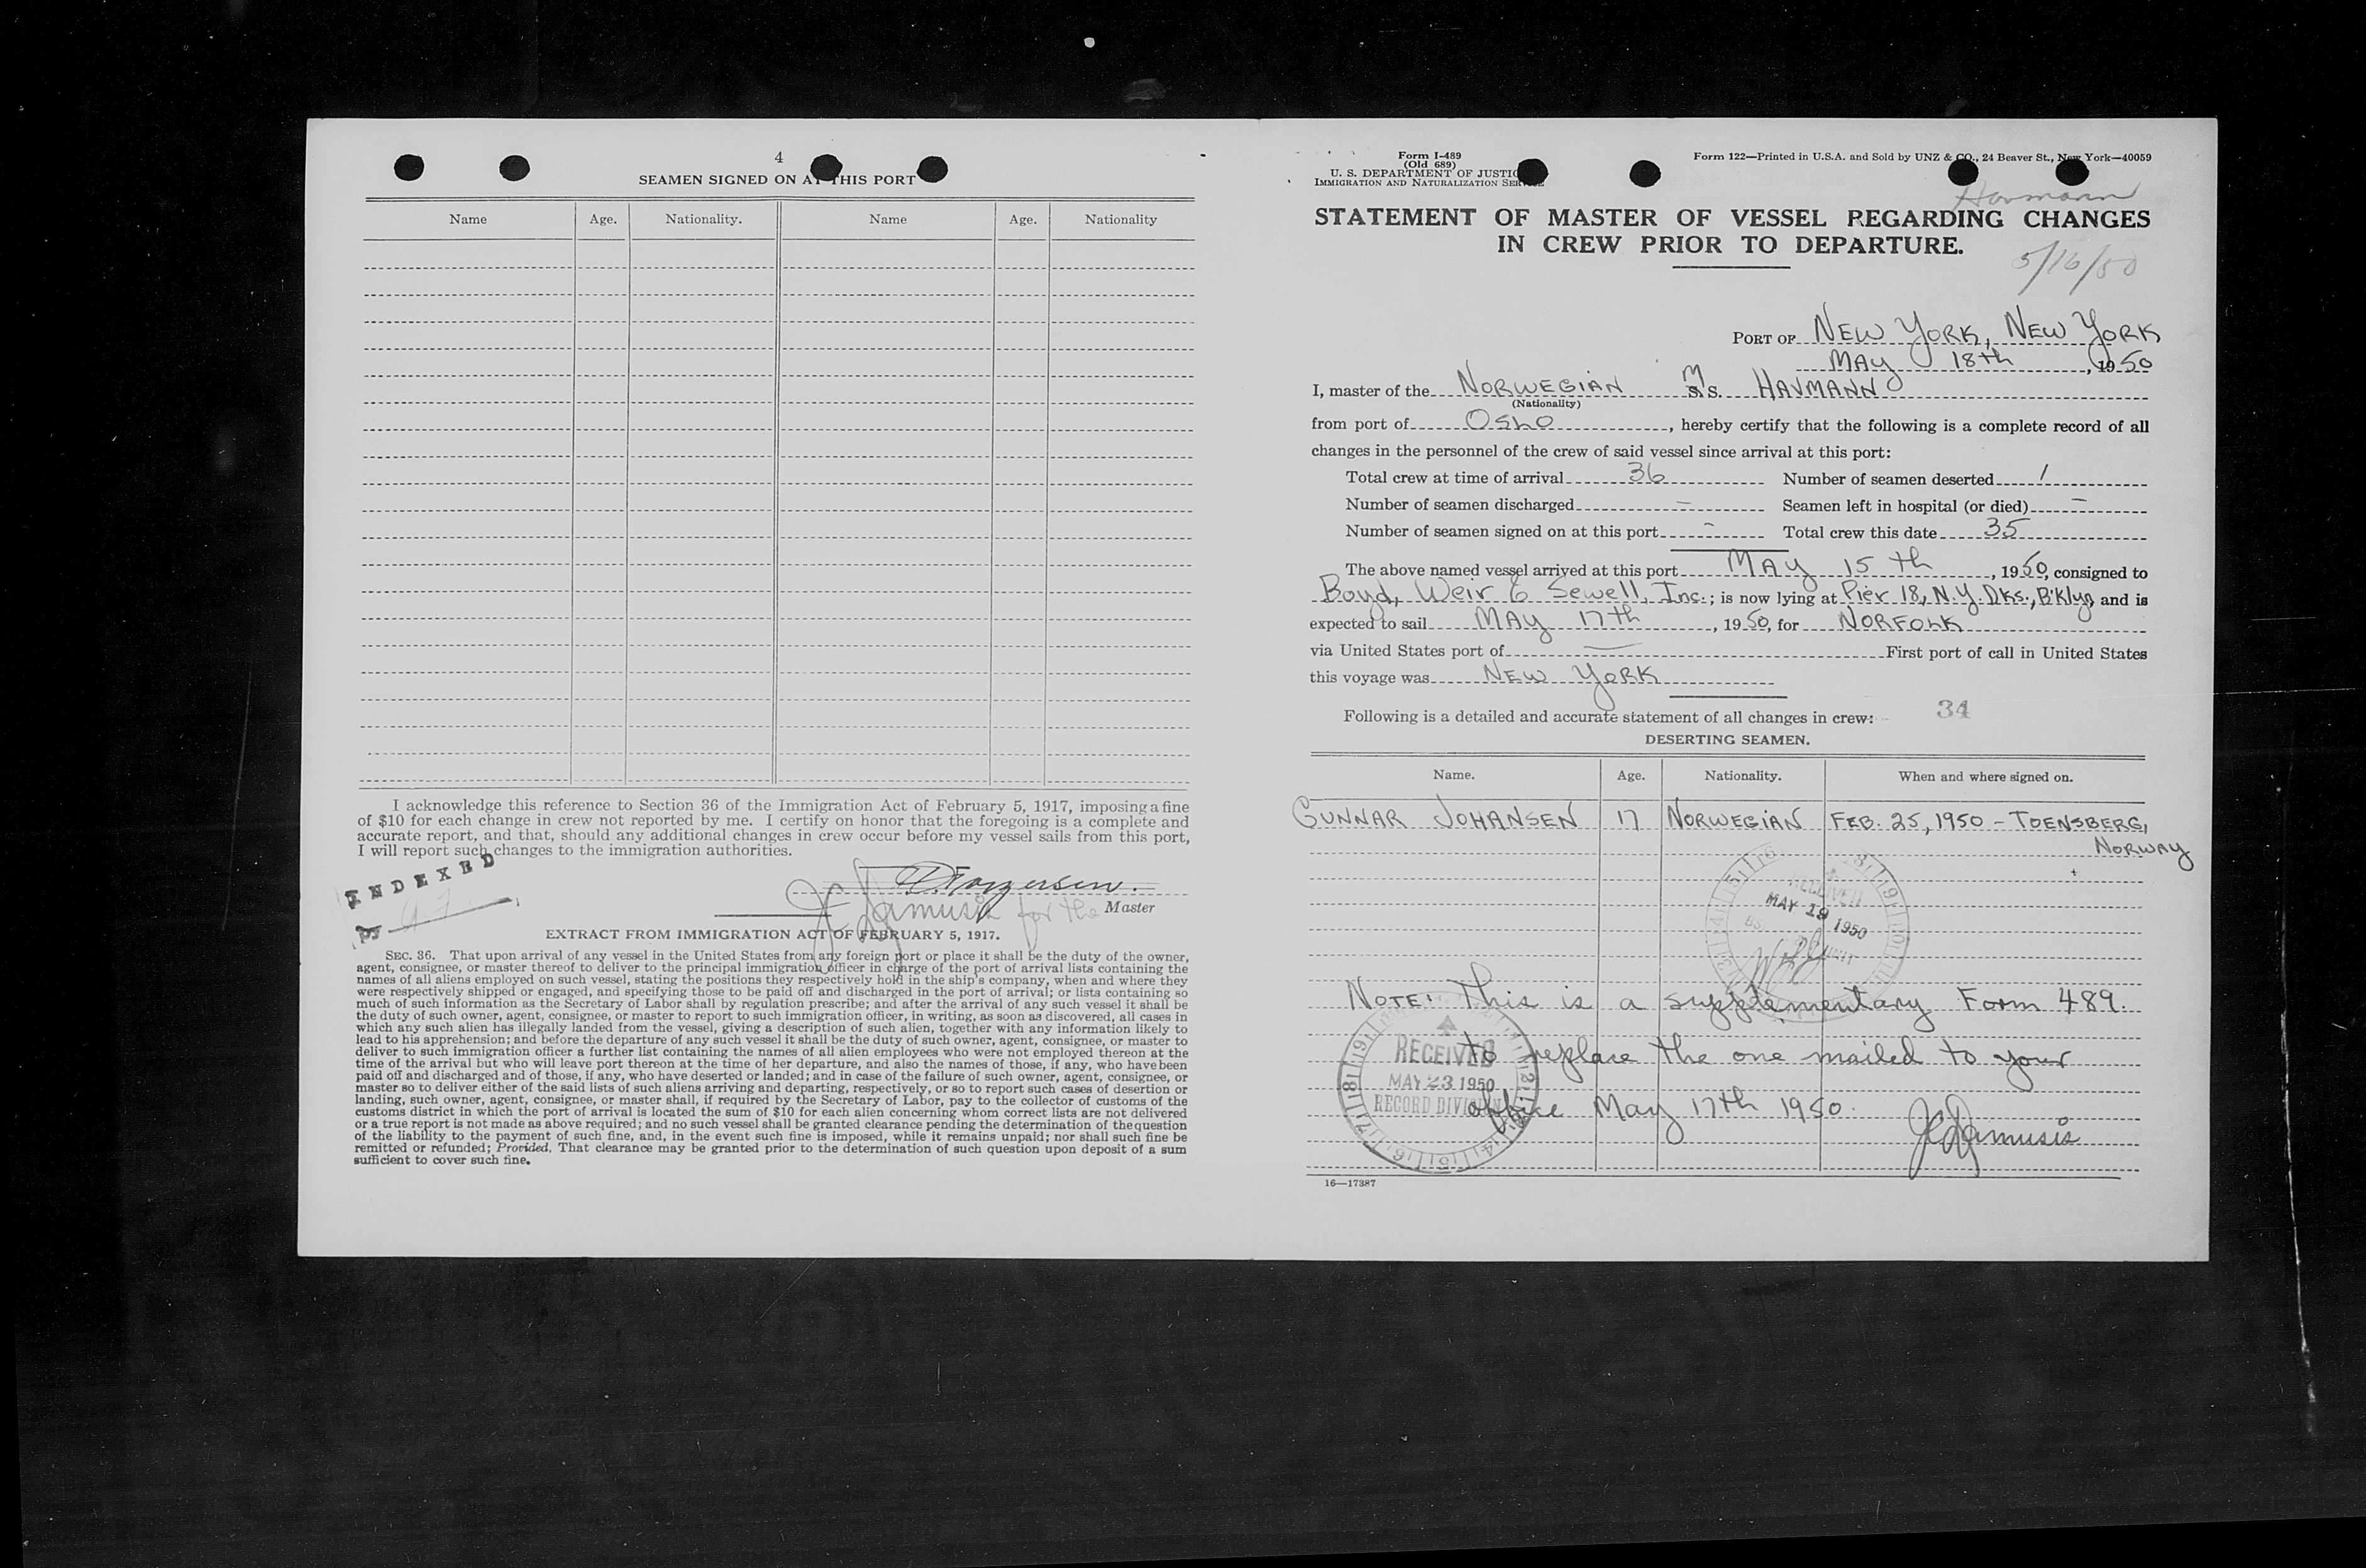 4
SEAMEN SIGNED ON AT THIS PORT
Name Age. Nationality. Name Age. Nationality
I acknowledge this reference to Section 36 of the Immigration Act of February 5, 1917, imposing a fine
of $10 for each change in crew not reported by me. I certify on honor that the foregoing is a complete and
accurate report, and that, should any additional changes in crew occur before my vessel sails from this port,
I will report such changes to the immigration authorities.
INDEXED
for the Master
EXTRACT FROM IMMIGRATION ACT OF FEBRUARY 5, 1917.
SEC. 36. That upon arrival of any vessel in the United States from any foreign port or place it shall be the duty of the owner,
agent, consignee, or master thereof to deliver to the principal immigration officer in charge of the port of arrival lists containing the
names of all aliens employed on such vessel, stating the positions they respectively hold in the ship's company, when and where they
were respectively shipped or engaged, and specifying those to be paid off and discharged in the port of arrival; or lists containing so
much of such information as the Secretary of Labor shall by regulation prescribe; and after the arrival of any such vessel it shall be
the duty of such owner, agent, consignee, or master to report to such immigration officer, in writing, as soon as discovered, all cases in
which any such alien has illegally landed from the vessel, giving a description of such alien, together with any information likely to
lead to his apprehension; and before the departure of any such vessel it shall be the duty of such owner, agent, consignee, or master to
deliver to such immigration officer a further list containing the names of all alien employees who were not employed thereon at the
time of the arrival but who will leave port thereon at the time of her departure, and also the names of those, if any, who have been
paid off and discharged and of those, if any, who have deserted or landed; and in case of the failure of such owner, agent, consignee, or
master so to deliver either of the said lists of such aliens arriving and departing, respectively, or so to report such cases of desertion or
landing, such owner, agent, consignee, or master shall, if required by the Secretary of Labor, pay to the collector of customs of the
customs district in which the port of arrival is located the sum of $10 for each alien concerning whom correct lists are not delivered
or a true report is not made as above required; and no such vessel shall be granted clearance pending the determination of the question
of the liability to the payment of such fine, and, in the event such fine is imposed, while it remains unpaid; nor shall such fine be
remitted or refunded; Provided, That clearance may be granted prior to the determination of such question upon deposit of a sum
sufficient to cover such fine.
Form I-489
(Old 689)
U. S. DEPARTMENT OF JUSTICE
IMMIGRATION AND NATURALIZATION SERVICE
Form 122—Printed in U.S.A. and Sold by UNZ & CO., 24 Beaver St., New York—40059
Havmann
STATEMENT OF MASTER OF VESSEL REGARDING CHANGES
IN CREW PRIOR TO DEPARTURE.
5/16/50
PORT OF NEW YORK, NEW YORK
MAY 18th, 1950
I, master of the NORWEGIAN M S.S. HAVMANN
(Nationality)
from port of OSLO, hereby certify that the following is a complete record of all
changes in the personnel of the crew of said vessel since arrival at this port:
Total crew at time of arrival 36 Number of seamen deserted 1
Number of seamen discharged – Seamen left in hospital (or died) –
Number of seamen signed on at this port – Total crew this date 35
The above named vessel arrived at this port MAY 15th, 1950, consigned to
Boyd, Weir & Sewell, Inc.; is now lying at Pier 18, N.Y. Dks., B'klyn and is
expected to sail MAY 17th, 1950, for NORFOLK
via United States port of — First port of call in United States
this voyage was NEW YORK
Following is a detailed and accurate statement of all changes in crew: 34
DESERTING SEAMEN.
Name. Age. Nationality. When and where signed on.
GUNNAR JOHANSEN 17 NORWEGIAN FEB. 25, 1950 – TOENSBERG,
NORWAY
RECEIVED
MAY 19 1950
NOTE: This is a supplementary Form 489.
to replace the one mailed to your
office May 17th 1950.
RECEIVED
MAY 23 1950
RECORD DIVISION
16—17387